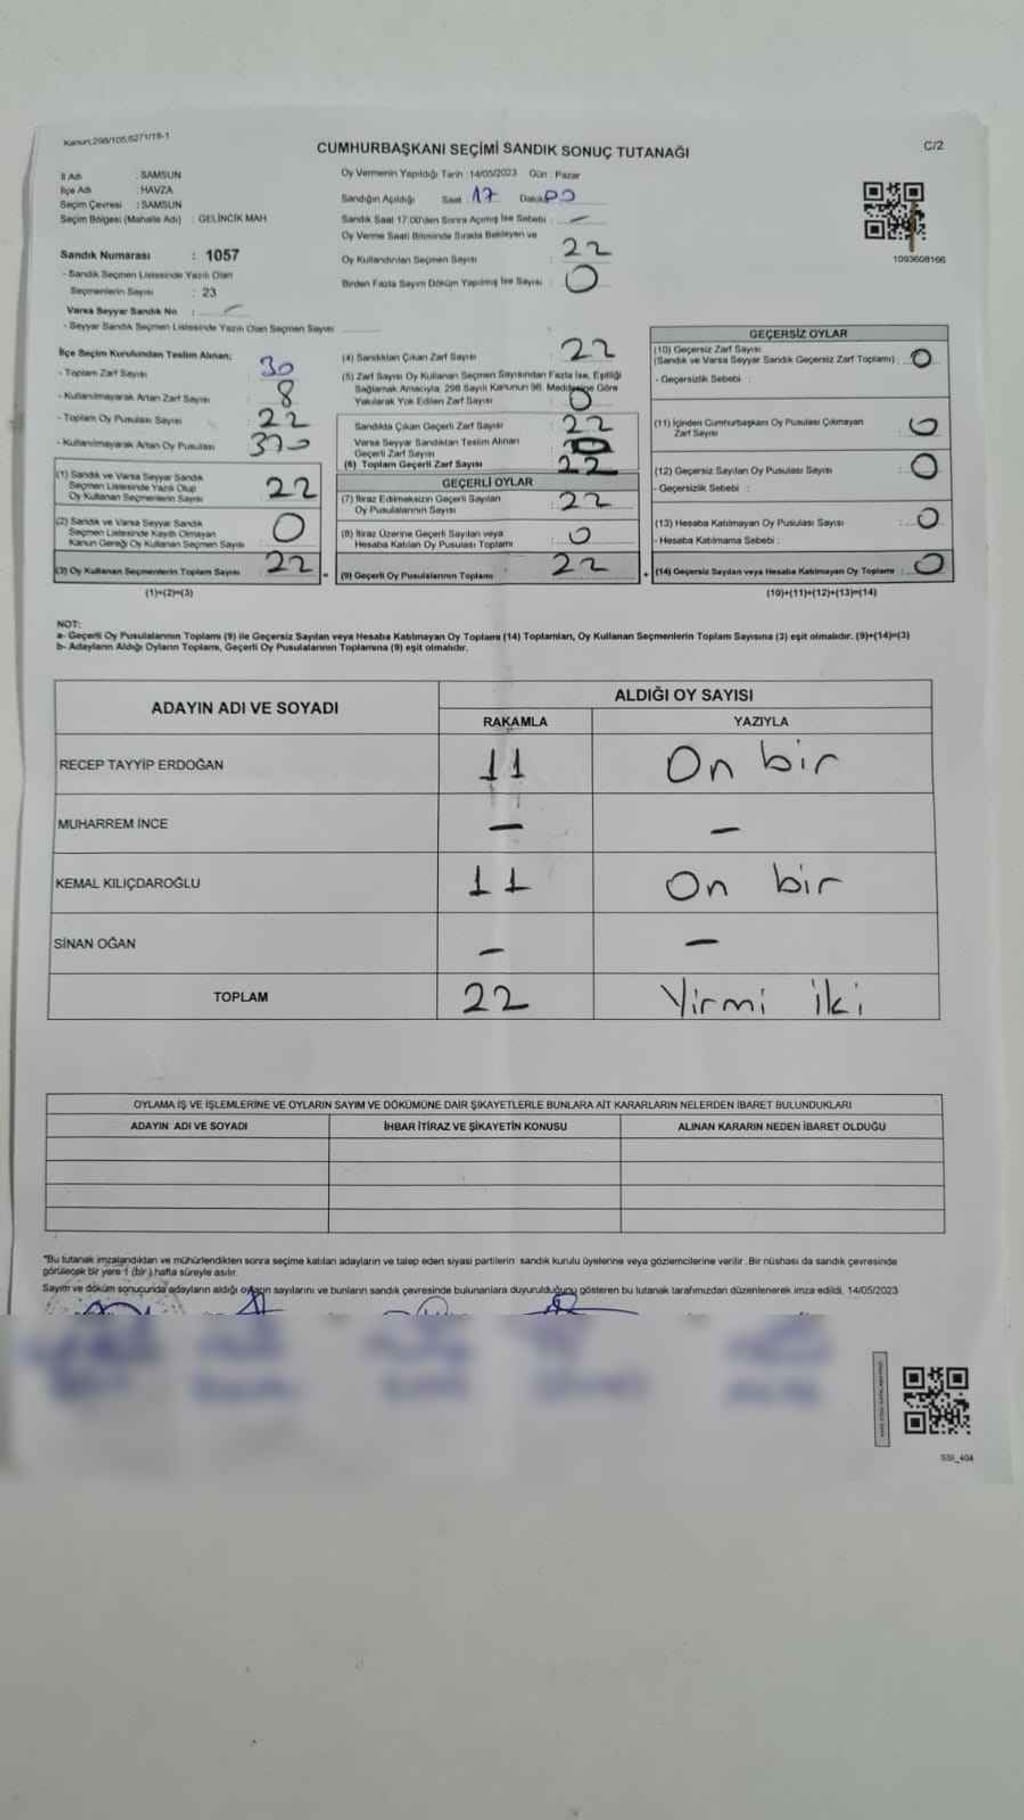 Kanun:298/105,6271/18-1
CUMHURBAŞKANI SEÇİMİ SANDIK SONUÇ TUTANAĞI
C/2
İl Adı : SAMSUN
İlçe Adı : HAVZA
Seçim Çevresi : SAMSUN
Seçim Bölgesi (Mahalle Adı) : GELİNCİK MAH
Oy Vermenin Yapıldığı Tarih :14/05/2023 Gün : Pazar
Sandığın Açıldığı Saat : 17 Dakika 00
Sandık Saat 17:00'den Sonra Açılmış İse Sebebi : -
Oy Verme Saati Bitiminde Sırada Bekleyen ve
Oy Kullandırılan Seçmen Sayısı : 22
Birden Fazla Sayım Döküm Yapılmış İse Sayısı : 0
1093608166
Sandık Numarası : 1057
- Sandık Seçmen Listesinde Yazılı Olan
Seçmenlerin Sayısı : 23
Varsa Seyyar Sandık No : -
- Seyyar Sandık Seçmen Listesinde Yazılı Olan Seçmen Sayısı
İlçe Seçim Kurulundan Teslim Alınan;
- Toplam Zarf Sayısı 30
- Kullanılmayarak Artan Zarf Sayısı 8
- Toplam Oy Pusulası Sayısı 22
- Kullanılmayarak Artan Oy Pusulası 370
(1) Sandık ve Varsa Seyyar Sandık
Seçmen Listesinde Yazılı Olup
Oy Kullanan Seçmenlerin Sayısı 22
(2) Sandık ve Varsa Seyyar Sandık
Seçmen Listesinde Kayıtlı Olmayan
Kanun Gereği Oy Kullanan Seçmen Sayısı 0
(3) Oy Kullanan Seçmenlerin Toplam Sayısı 22
(1)+(2)=(3)
(4) Sandıktan Çıkan Zarf Sayısı 22
(5) Zarf Sayısı Oy Kullanan Seçmen Sayısından Fazla İse, Eşitliği
Sağlamak Amacıyla, 298 Sayılı Kanunun 98. Maddesine Göre
Yakılarak Yok Edilen Zarf Sayısı 0
Sandıkta Çıkan Geçerli Zarf Sayısı : 22
Varsa Seyyar Sandıktan Teslim Alınan
Geçerli Zarf Sayısı
(6) Toplam Geçerli Zarf Sayısı 22
GEÇERLİ OYLAR
(7) İtiraz Edilmeksizin Geçerli Sayılan
Oy Pusulalarının Sayısı : 22
(8) İtiraz Üzerine Geçerli Sayılan veya
Hesaba Katılan Oy Pusulası Toplamı : 0
= (9) Geçerli Oy Pusulalarının Toplamı 22
GEÇERSİZ OYLAR
(10) Geçersiz Zarf Sayısı
(Sandık ve Varsa Seyyar Sandık Geçersiz Zarf Toplamı) : 0
- Geçersizlik Sebebi :
(11) İçinden Cumhurbaşkanı Oy Pusulası Çıkmayan
Zarf Sayısı : 0
(12) Geçersiz Sayılan Oy Pusulası Sayısı 0
- Geçersizlik Sebebi :
(13) Hesaba Katılmayan Oy Pusulası Sayısı : 0
- Hesaba Katılmama Sebebi :
+ (14) Geçersiz Sayılan veya Hesaba Katılmayan Oy Toplamı : 0
(10)+(11)+(12)+(13)=(14)
NOT:
a- Geçerli Oy Pusulalarının Toplamı (9) ile Geçersiz Sayılan veya Hesaba Katılmayan Oy Toplamı (14) Toplamları, Oy Kullanan Seçmenlerin Toplam Sayısına (3) eşit olmalıdır. (9)+(14)=(3)
b- Adayların Aldığı Oyların Toplamı, Geçerli Oy Pusulalarının Toplamına (9) eşit olmalıdır.
ADAYIN ADI VE SOYADI
ALDIĞI OY SAYISI
RAKAMLA YAZIYLA
RECEP TAYYİP ERDOĞAN 11 On bir
MUHARREM İNCE - -
KEMAL KILIÇDAROĞLU 11 On bir
SİNAN OĞAN - -
TOPLAM 22 Yirmi iki
OYLAMA İŞ VE İŞLEMLERİNE VE OYLARIN SAYIM VE DÖKÜMÜNE DAİR ŞİKAYETLERLE BUNLARA AİT KARARLARIN NELERDEN İBARET BULUNDUKLARI
ADAYIN ADI VE SOYADI İHBAR İTİRAZ VE ŞİKAYETİN KONUSU ALINAN KARARIN NEDEN İBARET OLDUĞU
*Bu tutanak imzalandıktan ve mühürlendikten sonra seçime katılan adayların ve talep eden siyasi partilerin sandık kurulu üyelerine veya gözlemcilerine verilir. Bir nüshası da sandık çevresinde
görülecek bir yere 1 (bir) hafta süreyle asılır.
Sayım ve döküm sonucunda adayların aldığı oyların sayılarını ve bunların sandık çevresinde bulunanlara duyurulduğunu gösteren bu tutanak tarafımızdan düzenlenerek imza edildi. 14/05/2023
SSI_404